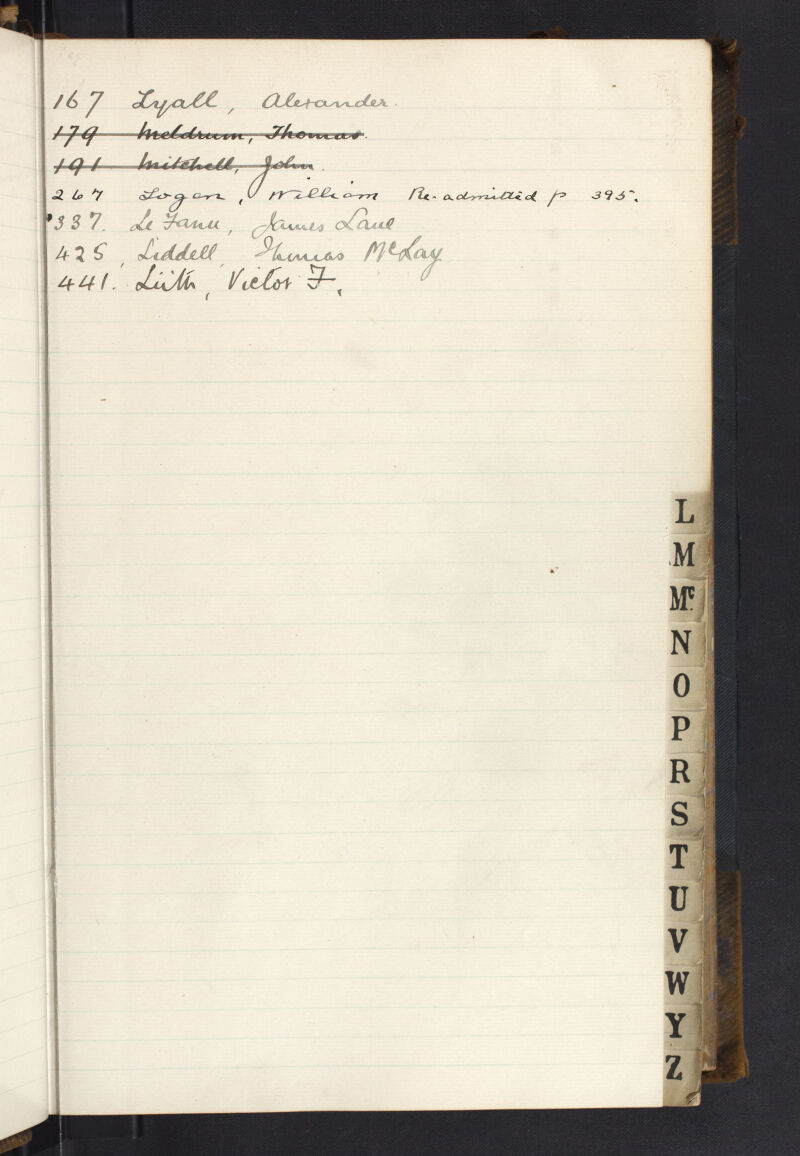 167 Lyall, Alexander.
179 Meldrum, Thomas.
191 Mitchell, John.
267 Logan, William Re-admitted p 395.
337. Le Fanu, James Lane
425, Liddell, Thomas McLay
441. Lüth, Victor F.
L
M
Mc.
N
O
P
R
S
T
U
V
W
Y
Z